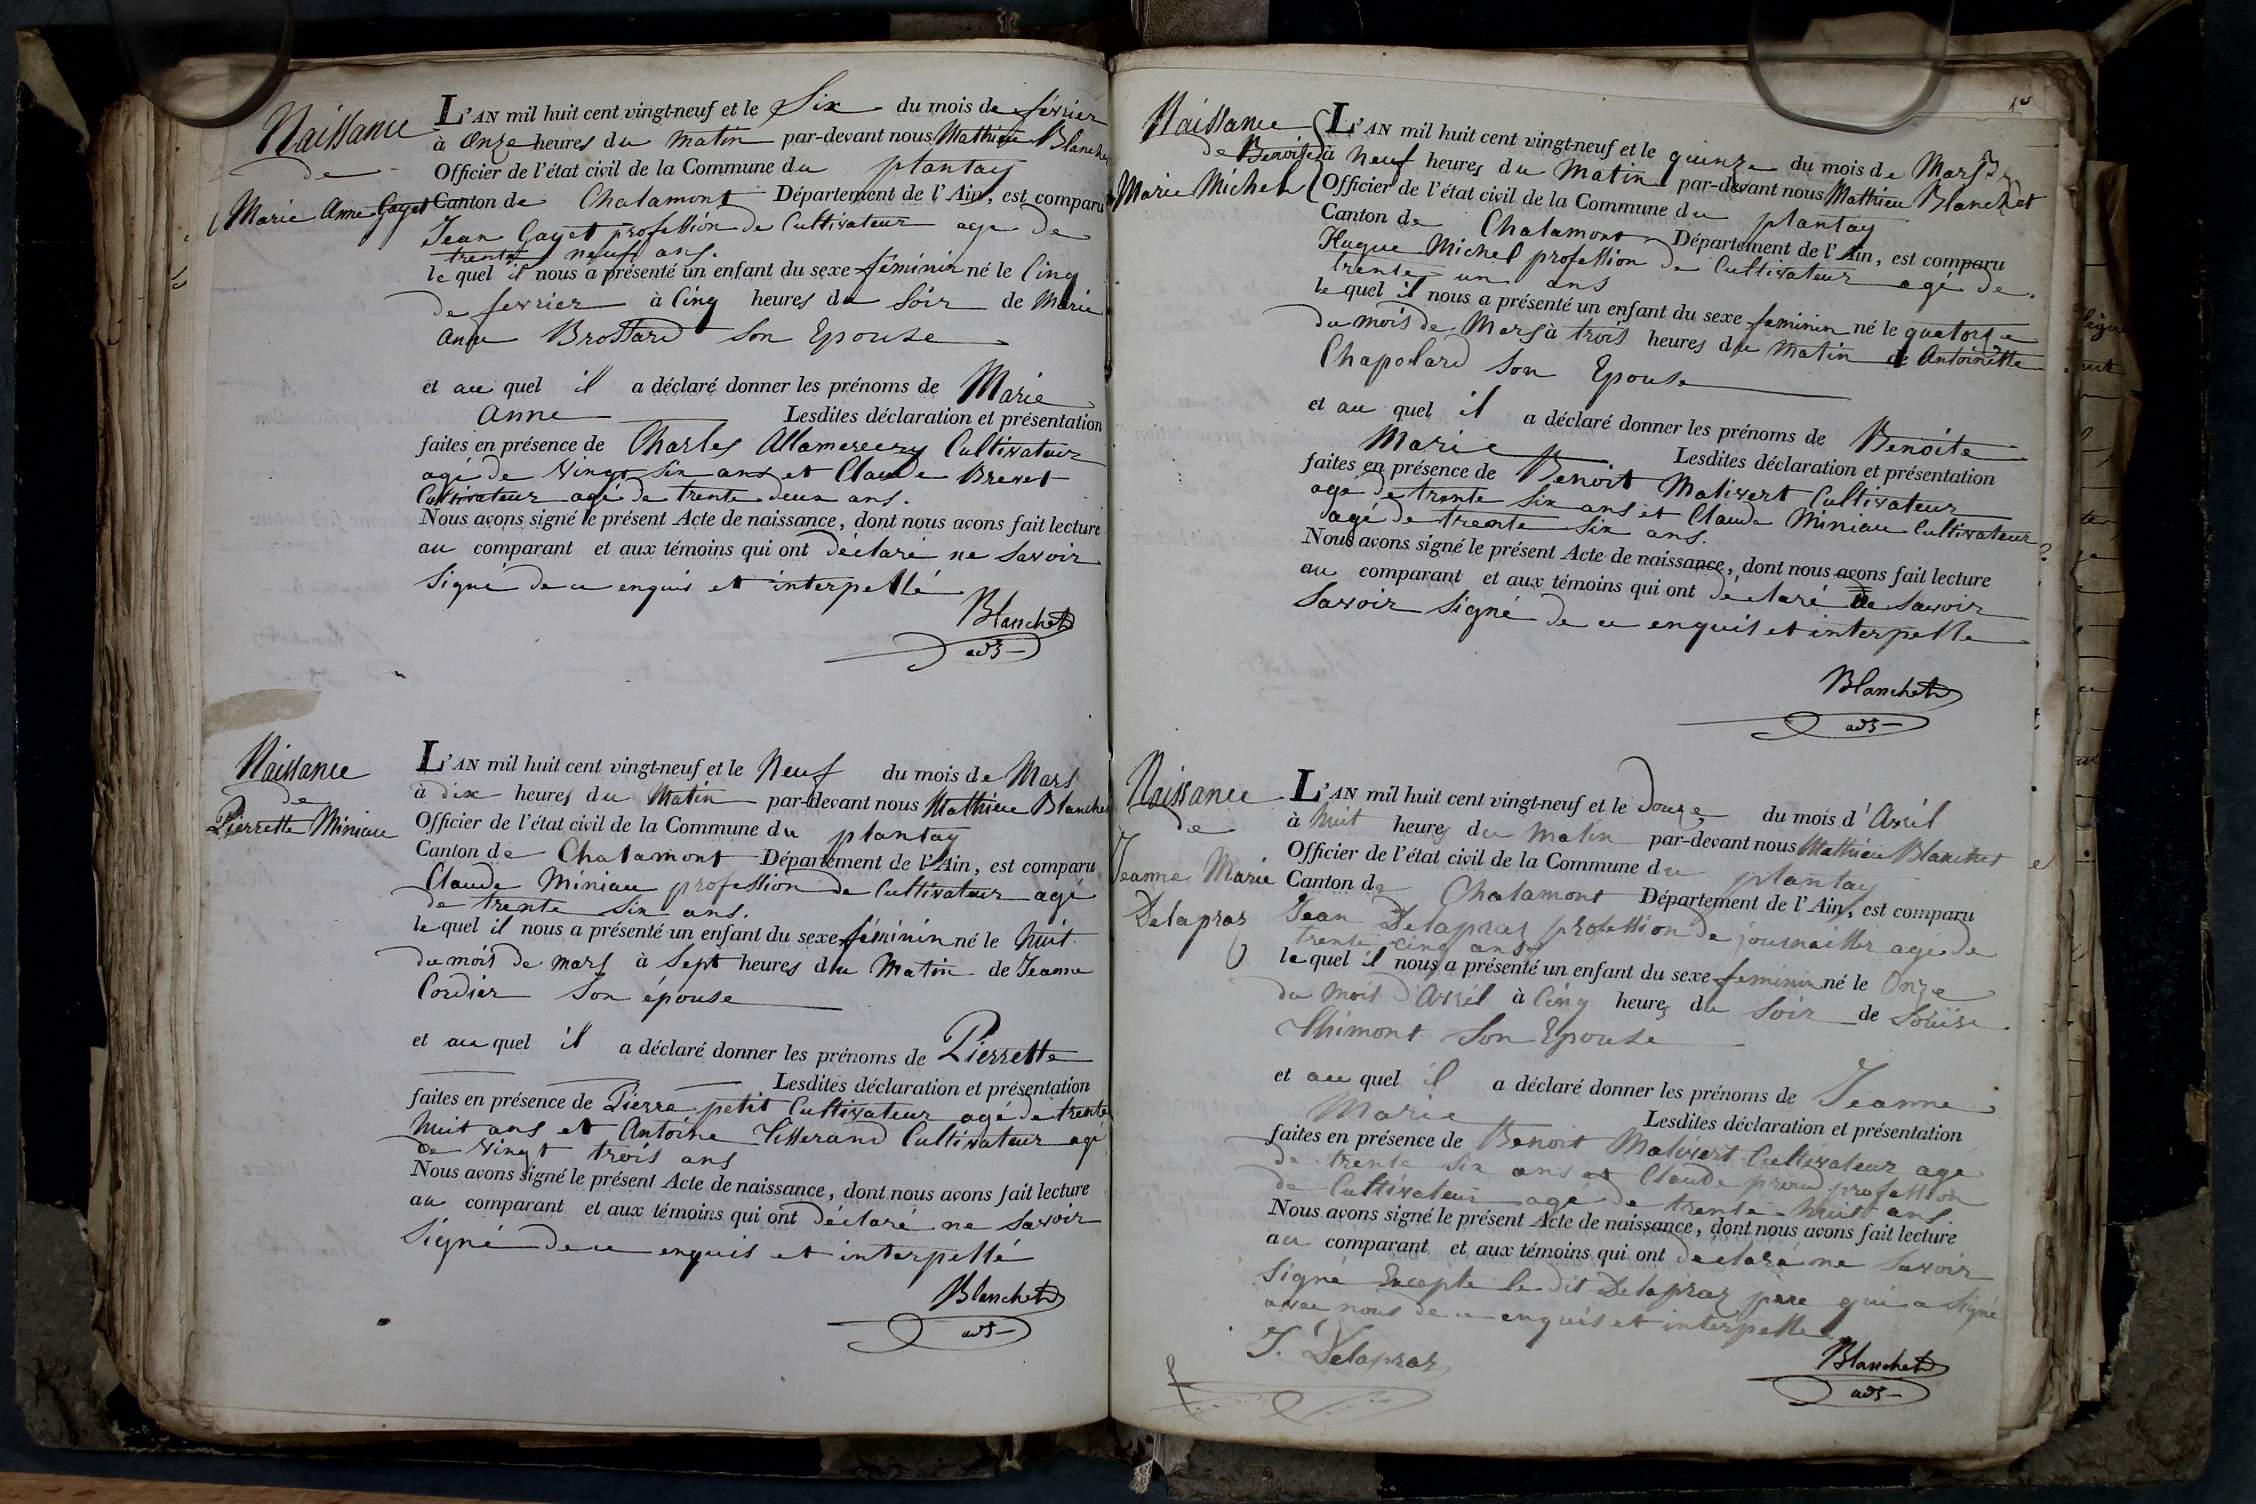 Naissance
de
Marie Anne Gayet
L'AN mil huit cent vingt-neuf et le Six du mois de février
à Onze heures du Matin par-devant nous Mathieu Blanchet
Officier de l'état civil de la Commune du plantay
Canton de Chalamont Département de l'Ain, est comparu
Jean Gayet profession de Cultivateur age de
trente neuf ans.
le quel il nous a présenté un enfant du sexe féminin né le Cinq
de fevrier à Cinq heures du Soir de Marie
Anne Brossard Son Epouse
et au quel il a déclaré donner les prénoms de Marie
Anne Lesdites déclaration et présentation
faites en présence de Charles Cultivateur
agé de vingt Six ans et Claude Brevet
Cultivateur agé de trente deux ans.
Nous avons signé le présent Acte de naissance, dont nous avons fait lecture
au comparant et aux témoins qui ont déclaré ne Savoir
Signé de ce enquis et interpellé
Blanchet
adt
Naissance
de
Pierrette Miniau
L'AN mil huit cent vingt-neuf et le Neuf du mois de Mars
à dix heures du Matin par-devant nous Mathieu Blanchet
Officier de l'état civil de la Commune du plantay
Canton de Chalamont Département de l'Ain, est comparu
Claude Miniau profession de Cultivateur agé
de trente Six ans.
le quel il nous a présenté un enfant du sexe féminin né le huit
du mois de mars à Sept heures du Matin de Jeanne
Cordier Son épouse
et au quel il a déclaré donner les prénoms de Pierrette
Lesdites déclaration et présentation
faites en présence de Pierre petit Cultivateur agé de trente
huit ans et Antoine Tisserand Cultivateur agé
de vingt trois ans
Nous avons signé le présent Acte de naissance, dont nous avons fait lecture
au comparant et aux témoins qui ont déclaré ne Savoir
Signé de ce enquis et interpellé
Blanchet
adt
10
Naissance
de Benoite
Marie Michel
L'AN mil huit cent vingt-neuf et le quinze du mois de Mars
à Neuf heures du Matin par-devant nous Mathieu Blanchet
Officier de l'état civil de la Commune du plantay
Canton de Chalamont Département de l'Ain, est comparu
Hugue Michel profession de Cultivateur agé de
trente un ans
le quel il nous a présenté un enfant du sexe feminin né le quatorze
du mois de Mars à trois heures du Matin de Antoinette
Chapolard Son Epouse
et au quel il a déclaré donner les prénoms de Benoite
Marie Lesdites déclaration et présentation
faites en présence de Benoit Malivert Cultivateur
agé de trente Six ans et Claude Miniau Cultivateur
agé de trente Six ans.
Nous avons signé le présent Acte de naissance, dont nous avons fait lecture
au comparant et aux témoins qui ont déclaré Savoir
Savoir Signé de ce enquis et interpelle
Blanchet
adt
Naissance
de
Jeanne Marie
Delapraz
L'AN mil huit cent vingt-neuf et le Douze du mois d'Avril
à huit heures du Matin par-devant nous Mathieu Blanchet
Officier de l'état civil de la Commune du plantay
Canton de Chalamont Département de l'Ain, est comparu
Jean Delapraz profession de journallier agé de
trente cinq ans
le quel il nous a présenté un enfant du sexe feminin né le Onze
du Mois d'Avril à Cinq heures du Soir de Louise
Thimont Son Epouse
et au quel il a déclaré donner les prénoms de Jeanne
Marie Lesdites déclaration et présentation
faites en présence de Benoit Malivert Cultivateur age
de trente Six ans et Claude profession
de Cultivateur agé de trente huit ans.
Nous avons signé le présent Acte de naissance, dont nous avons fait lecture
au comparant et aux témoins qui ont declaré ne Savoir
Signé Excepte le dit Delapraz pere qui a Signé
avec nous de ce enquis et interpelle
J. Delapraz
Blanchet
adt